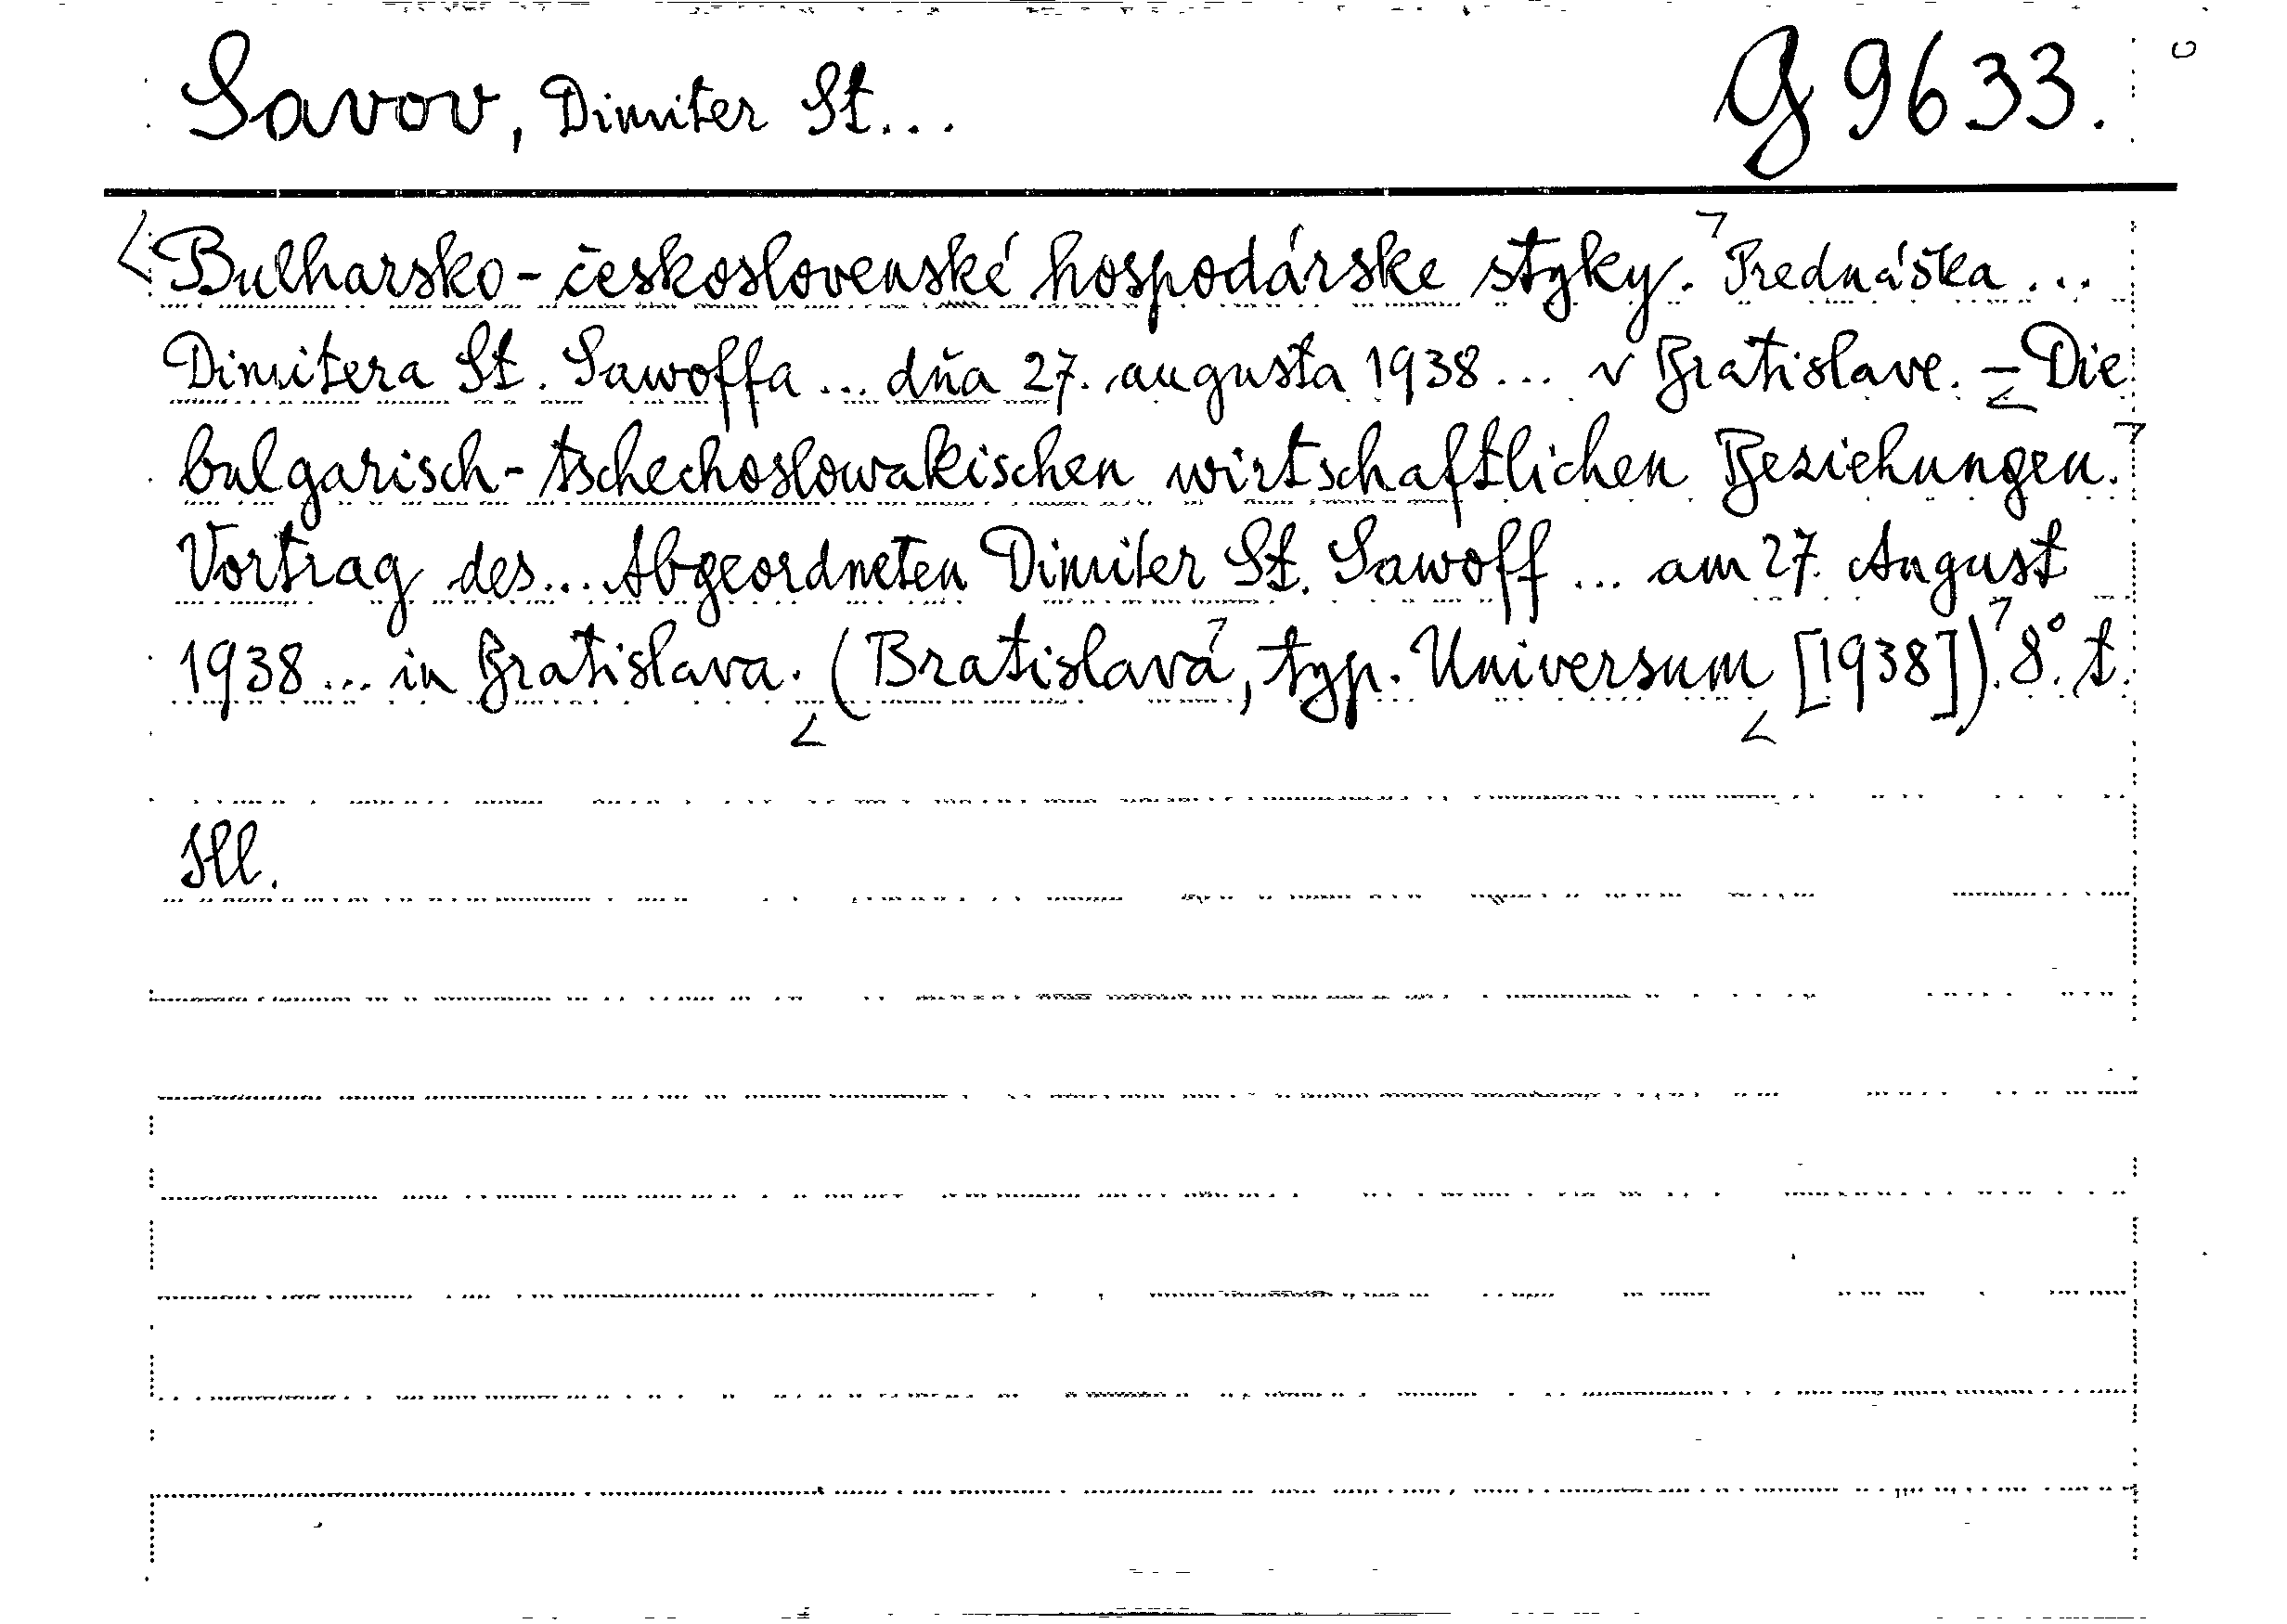 Savov, Dimiter St... G 9633.
Bulharsko-československé hospodárske styky. Prednáška ...
Dimitera St. Sawoffa ... dňa 27. augusta 1938 ... v Bratislave. – Die
bulgarisch-tschechoslowakischen wirtschaftlichen Beziehungen.
Vortrag des ... Abgeordneten Dimiter St. Sawoff ... am 27. August
1938 ... in Bratislava. (Bratislava, typ. Universum [1938]). 8°. t.
Ill.